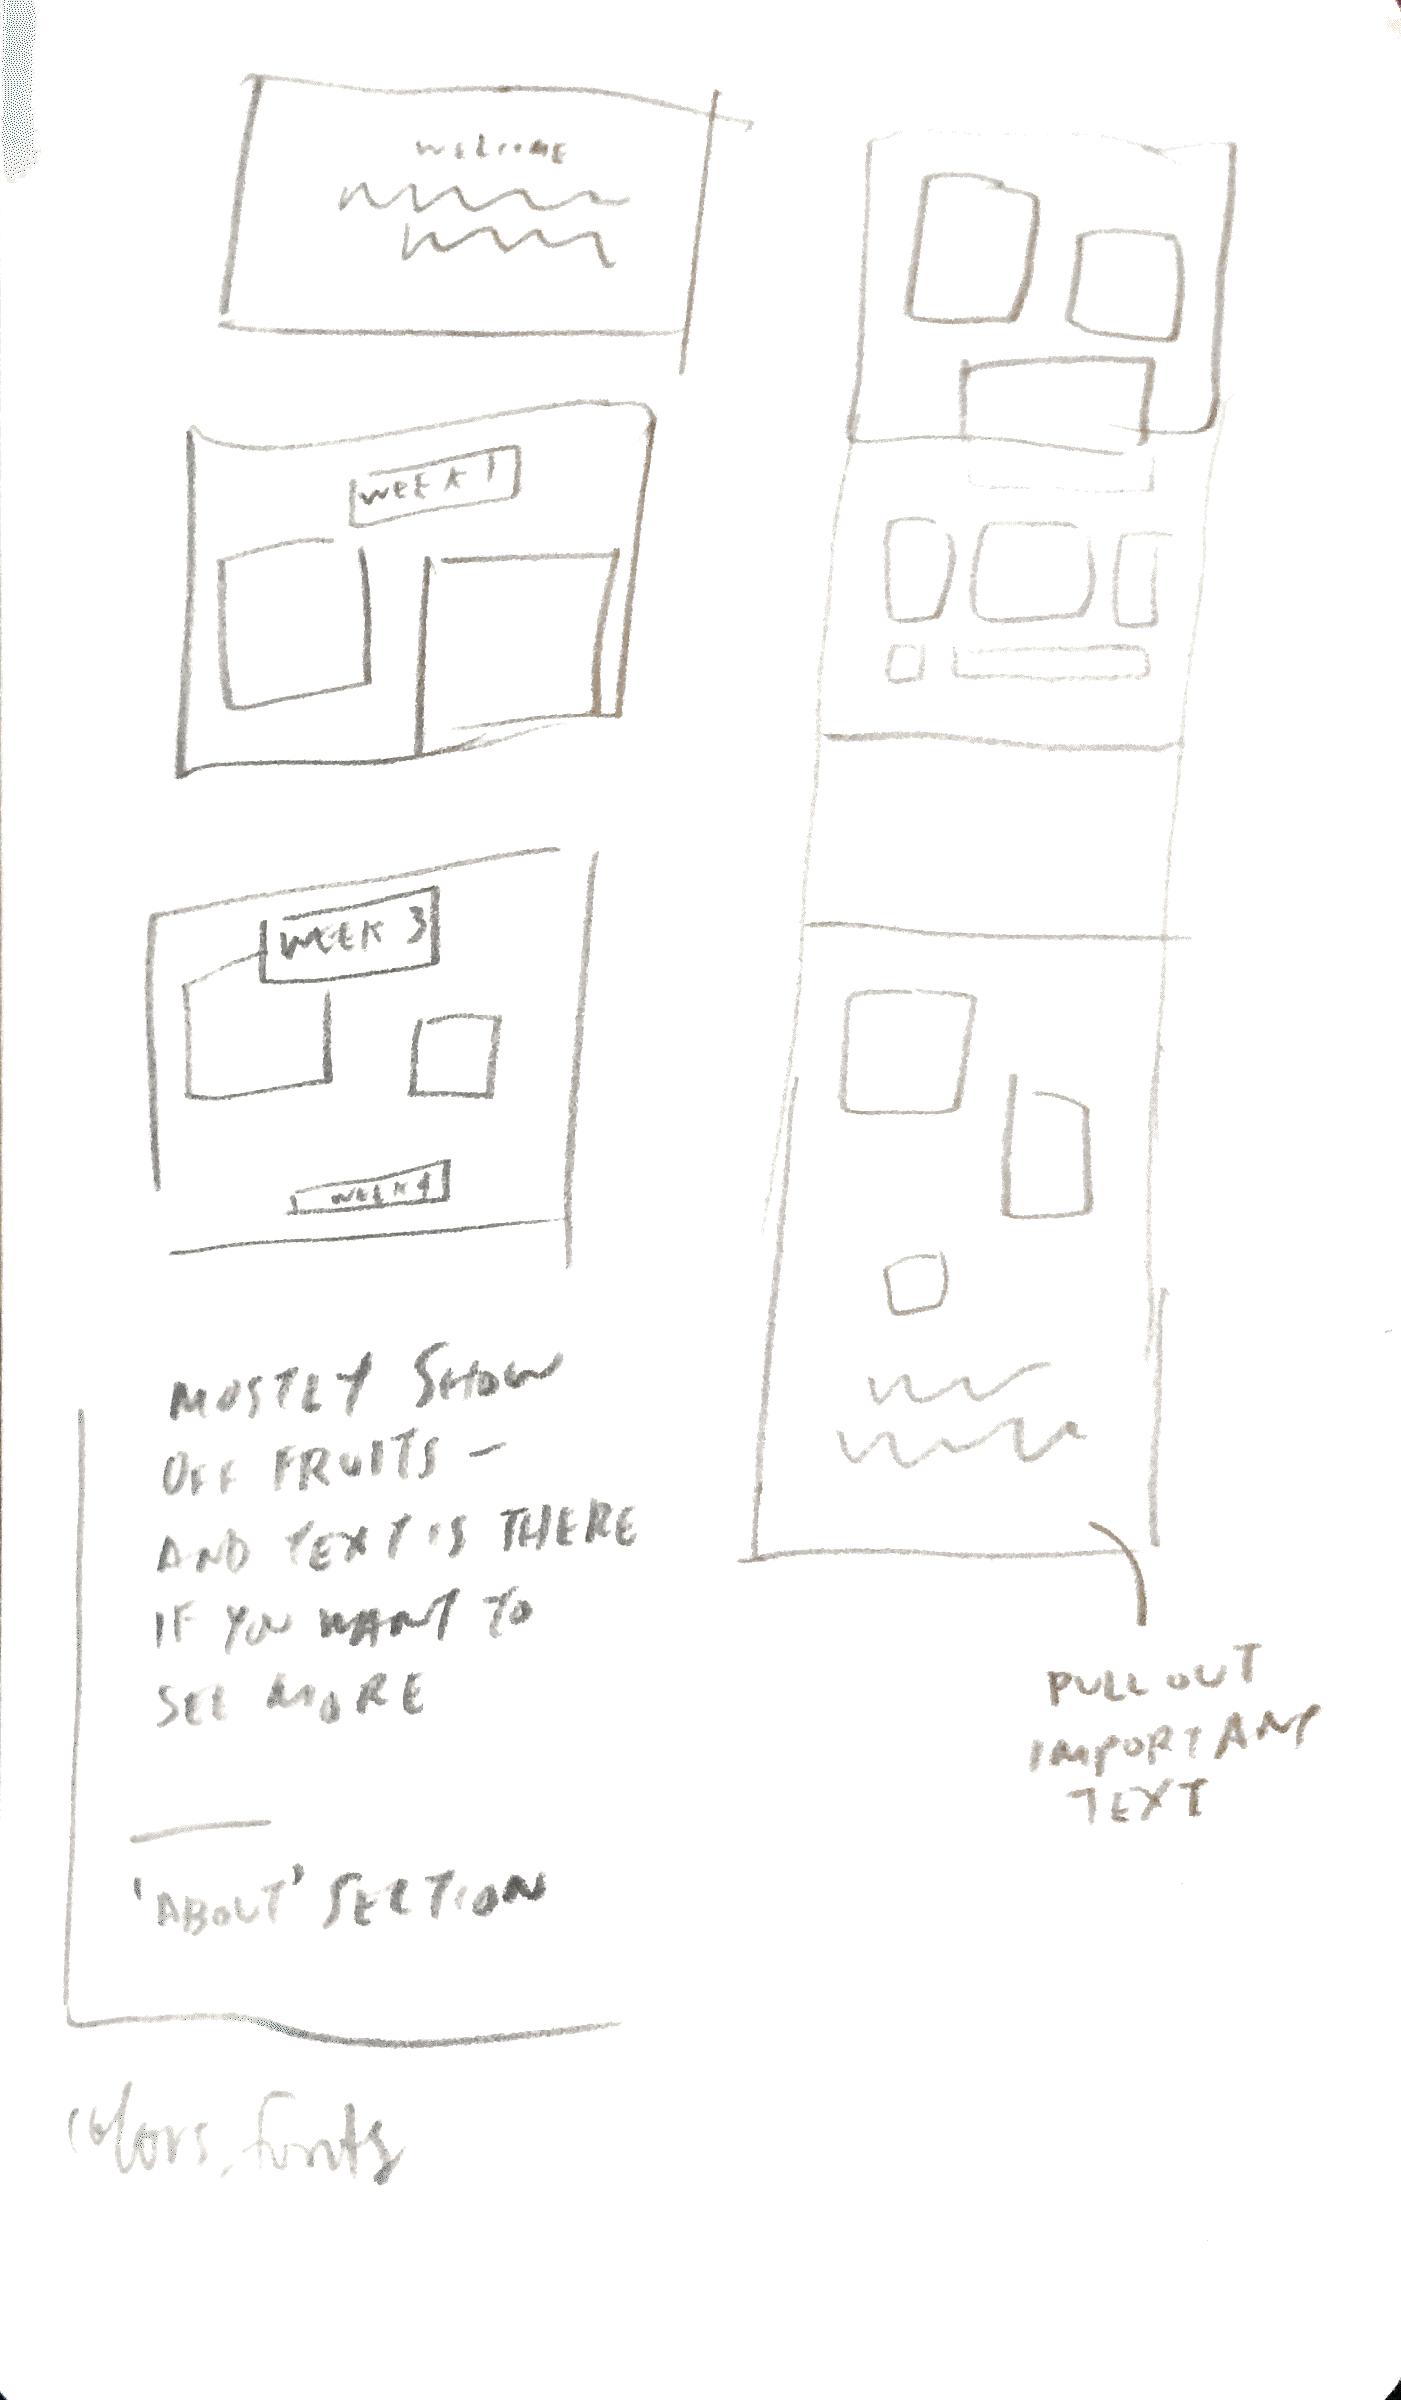 WELCOME
WEEK 1
WEEK 3
WEEK 4
MOSTLY SHOW
OFF FRUITS —
AND TEXT IS THERE
IF YOU WANT TO
SEE MORE
'ABOUT' SECTION
colors, fonts
PULL OUT
IMPORTANT
TEXT